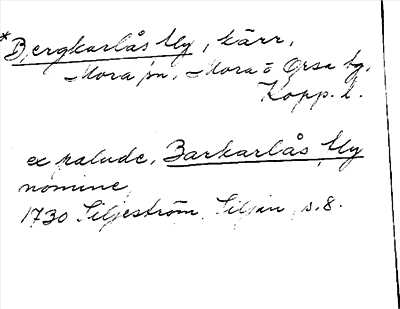 *Bergkarlås My, kärr,
Mora sn, Mora o Orsa tg,
Kopp. l.
ex palude, Barkarlås My
nomine
1730 Siljeström, Siljan, s. 8.